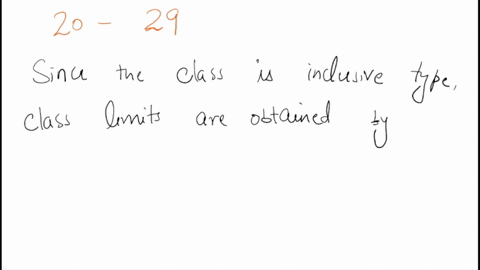 20 - 29
Since the class is inclusive type,
class limits are obtained by